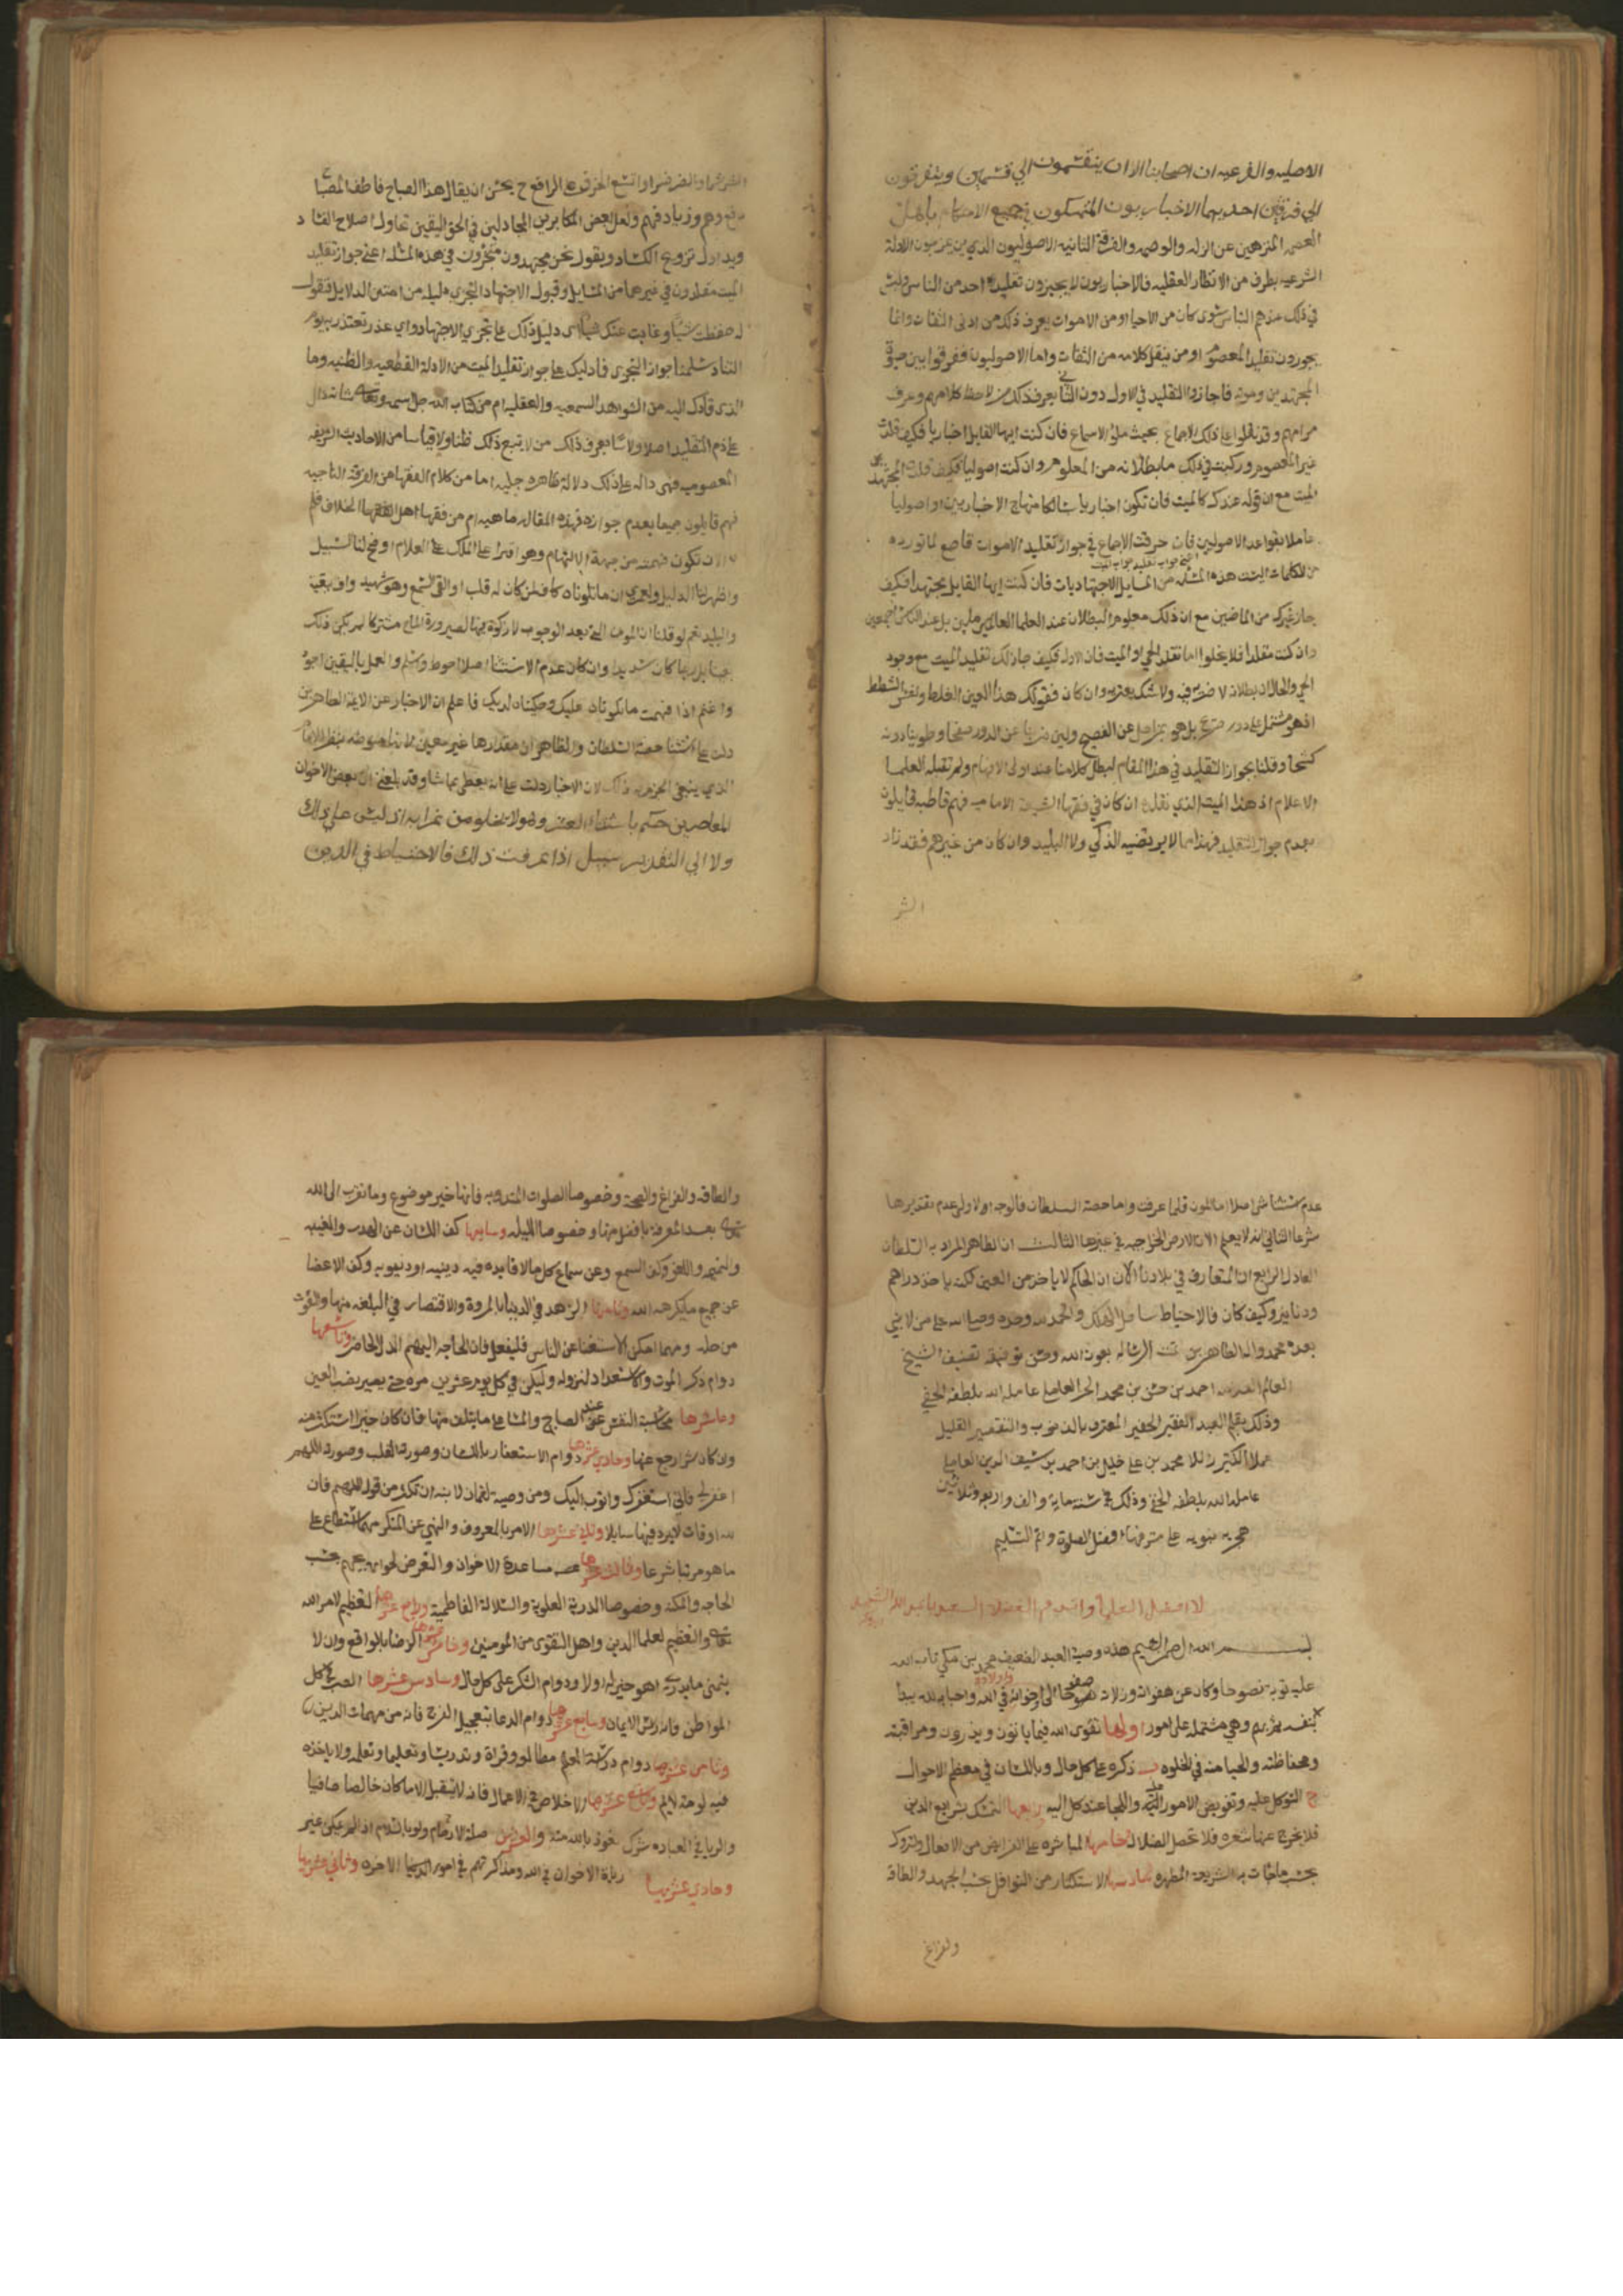 الاصليه والفرعيه ان اصحابنا الان ينقسمون الي قسمين ويفترقون
الي فرقتين احديهما الاخباريون المتمسكون في جميع الاحكام باهل
العصمه المنزهين عن الزله والوصمه والفرقة الثانيه الاصوليون الذين الادلة
الشرعيه بطرف من الانظار العقليه فالاخباريون لا يجيزون تقليد احد من الناس وليس
في ذلك عندهم الناس سوى كان من الاحيا او من الاموات يعرف ذلك من ادنى الثقات وانما
يجوزون تقليد المعصوم او من ينقل كلامه من الثقات واما الاصوليون ففرقوا بين حيوة
المجتهدين وموته فاجازوا التقليد في الاول دون الثاني يعرف ذلك من لاحظ كلامهم وعرف
مرامهم وقد نقلوا على ذلك الاجماع بحيث ملؤ الاسماع فان كنت ايها القايل اخباريا فكيف قلدت
غير المعصوم وركبت في ذلك ما بطلانه من المعلوم وان كنت اصوليا فكيف قلدت المجتهد
الميت مع ان قوله عندك كالميت فان تكون اخباريا سالكا منهاج الاخباريين او اصوليا
عاملا بقواعد الاصوليين فان خرقت الاجماع في جواز تقليد الاموات
من الكلمات اليست هذه المسئله من المسايل الاجتهاديات فان كنت ايها القايل مجتهدا فكيف
جاز غيرك من الماضين مع ان ذلك معلوم البطلان عند العلما العالمين بل عند الناس اجمعين
وان كنت مقلدا فلا يخلوا اما تقلد الحي او الميت فان الاول فكيف جاز لك تقليد الميت مع وجود
الحي والحال ان بطلان لا ولا شك يعتريه وان كان فقولك هذا الغلط ونفس الشطط
فهو مشتمل على دور صريح بل هو بمراحل عن الفصيح ولين ضربنا عن الدور صفحا وطوينا دونه
كشحا وقلنا بجواز التقليد في هذا المقام لبطل كلامنا عند اولى الافهام ولم تقبله العلما
الاعلام اذ هذا الميت الذي نقلده ان كان في فقها الشيعة الاماميه فهم قاطبه قايلون
بعدم جواز التقليد فهذا مما لا يرتضيه الذكي ولا البليد وان كان من غيرهم فقد زاد
الشر
الشر شرا والضر ضرا واتسع الخرق على الراقع ح يحسن ان يقال هذا الصباح فاطف المصبا
ولعل بعض المكابرين المجادلين في الحق اليقين تحاول اصلاح الفساد
ويد ترويج الكساد ويقول نحن مجتهدون متجزون في هذه المسئله اعني جواز تقليد
الميت مقلدون في غيرها من المسايل وقبول الاجتهاد التجزي دليله من امتن الدلايل فنقول
له حفظت شيئا وغابت عنك اشيا اى دليل ذلك على تجزي الاجتهاد واي عذر تعتذر به يوم
التناد سلمنا جواز التجزى فما دليلك على جواز تقليد الميت من الادلة القطعيه والظنيه وما
الذى قادك اليه من الشواهد السمعيه والعقليه ام من كتاب الله جل اسمه وتعالى شانه دال
على ذم التقليد اصلا يعرف ذلك من لا يتبع ذلك ظنا ولا قياسا من الاحاديث الشريفه
المعصوميه فهي داله على ذلك دلالة ظاهره جليه اما من كلام الفقها من الفرقة الناجيه
فهم قايلون جميعا بعدم جوازه فهذه المقاله ماهيه ام من فقها اهل الخلاف فلم
الا ان تكون فهمته من جهة الالهام وهو افترا على الملك العلام اوضح لنا السبيل
واظهر لنا الدليل ولعمري ان ما تلوناه كاف لمن كان له قلب او القى السمع وهو شهيد
نعم لو قلنا ان المون التي بعد الوجوب لا زكوة فيها لصيرورة المال مشتركا لم يكن ذلك
بعيدا بل ربما كان سديدا وان كان عدم الاستثنا اصلا احوط واسلم والعمل باليقين احوط
واعلم اذا فهمت ما تلوناه عليك وحكيناه لديك فاعلم ان الاخبار عن الايمة الطاهرين
دلت على استثنا حصة السلطان والظاهر ان مقدارها غير معين
الذي ينبغي الجزم به ذلك لان الاخبار دلت على انه يعطى بما شا وقد بلغني ان بعض الاخوان
المعاصرين حكم باستثناء العشر وهو لا يخلو من غرابه اذ ليس على ذلك
ولا الي التقدير سبيل اذا عرفت ذلك فالاحتياط في الدين
عدم استثنا شي اصلا اما المون فلما عرفت واما حصة السلطان فالوجه الاول عدم تقديرها
شرعا الثاني انه لا يعلم الان الارض الخراجيه في غيرها الثالث ان الظاهر المراد به السلطان
العادل الرابع ان المتعارف في بلادنا الآن ان الحاكم لا ياخذ من العين لكنه ياخذ دراهم
ودنانير وكيف كان فالاحتياط ساحل الهلك والحمد لله وحده وصلى الله على من لا نبي
بعده محمد واله الطاهرين تمت الرساله بعون الله وحسن توفيقه تصنيف الشيخ
العالم احمد بن حسن بن محمد الحر العاملي عامله الله بلطفه الخفي
وذلك بقلم العبد الفقير الحقير المعترف بالذنوب والتقصير القليل
عملا الكثير زللا محمد بن علي خليل بن احمد بن شيف الدين العاملي
عامله الله بلطفه الخفي وذلك في سنة مايه والف واربعه وثلاثين
هجريه نبويه على مشرفها افضل الصلوة واتم التسليم
لا افضل العلما واشرف الفضلا السعيد ابا عبد الله الشهيد
بسم الله الرحمن الرحيم هذه وصية العبد الضعيف محمد بن مكي تاب الله
عليه توبة نصوحا وكان عن هفواته وزلاته صفوحا الى اخوانه في الله واحبايه لله يبدأ
بنفسه ثم بهم وهي مشتمله على امور اولها تقوى الله فيما ياتون ويذرون ومراقبته
ومحافظته والحيا منه في الخلوه ب ذكره على كل حال وباللسان في معظم الاحوال
ج التوكل عليه وتفويض الامور اليه واللجا عند كل اليه رابعها التمسك بشرايع الدين
فلا يخرج عنها شعره فلا تحصل الضلاله خامسها المباشره على الفرايض من الافعال والتروك
بحسب ما جات به الشريعة المطهره سادسها الاستكثار من النوافل بحسب الجهد والطاقه
والفراغ
والطاقه والفراغ والصحة وخصوصا الصلوات المندوبه فانها خير موضوع وما تقرب الى الله
تعالى بعد المعرفة بافضل منها وخصوصا الليليه وسابعها كف اللسان عن الهذر والغيبه
والنميمه واللغو وكف السمع وعن سماع كل ما لا فايده فيه دينيه او دنيويه وكف الاعضا
عن جميع ما يكرهه الله وثامنها الزهد في الدنيا بالمروة والاقتصار في البلغه منها والقوت
من حله ومهما امكن الاستغنا عن الناس فليفعل فان الحاجه اليهم الذل الحاضر وتاسعها
دوام ذكر الموت والاستعداد لنزوله وليكن في كل يوم عشرين مره حتى يصير نصب العين
وعاشرها محاسبة النفس عند الصباح والمسا على ما يتلف منها فان كان خيرا استكثر منه
وان كان شرا رجع عنها وحادي عشرها دوام الاستغفار باللسان وصورة القلب وصورة اللهم
اغفر لي فاني استغفرك واتوب اليك ومن وصية لقمان لابنه ان تكثر من قول اللهم فان
لله اوقات لا يرد فيها سايلا وثاني عشرها الامر بالمعروف والنهي عن المنكر مهما استطاع على
ما هو مرتبا شرعا وثالث عشرها مساعدة الاخوان والتعرض لحوايجهم بحسب
الحاجه والمكنه وخصوصا الذرية العلوية والسلالة الفاطمية ورابع عشرها التعظيم لامر الله
تعالى والتعظيم لعلما الدين واهل التقوى من المومنين وخامس عشرها الرضا بالواقع وان لا
يتمنى ما يدري اهو خير له اولا ودوام الشكر على كل حال وسادس عشرها الصبر في كل
المواطن فانه راس الايمان وسابع عشرها دوام الدعا بتعجيل الفرج فانه من مهمات الدين
وثامن عشرها دوام دراسة العلم مطالعه وقراة وتدريسا وتعليما وتعلما ولا ياخذه
فيه لومة لايم وتاسع عشرها الاخلاص في الاعمال فانه لا يقبل الا ما كان خالصا صافيا
والريا في العباده شرك نعوذ بالله منه والعشرين صلة الارحام ولو بالسلام اذ لم يمكن غير
وحادي عشريها زيارة الاخوان في الله ومذاكرتهم في امور الدنيا الاخره وثاني عشريها